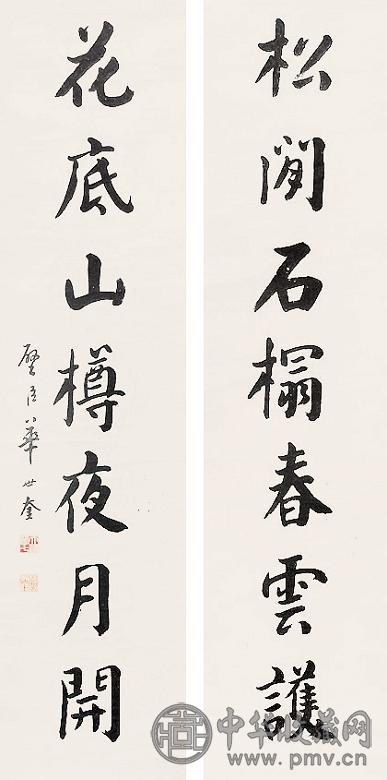 松間石榻春雲護
花底山樽夜月開
璧臣華世奎
中华收藏网
www.pmv.cn